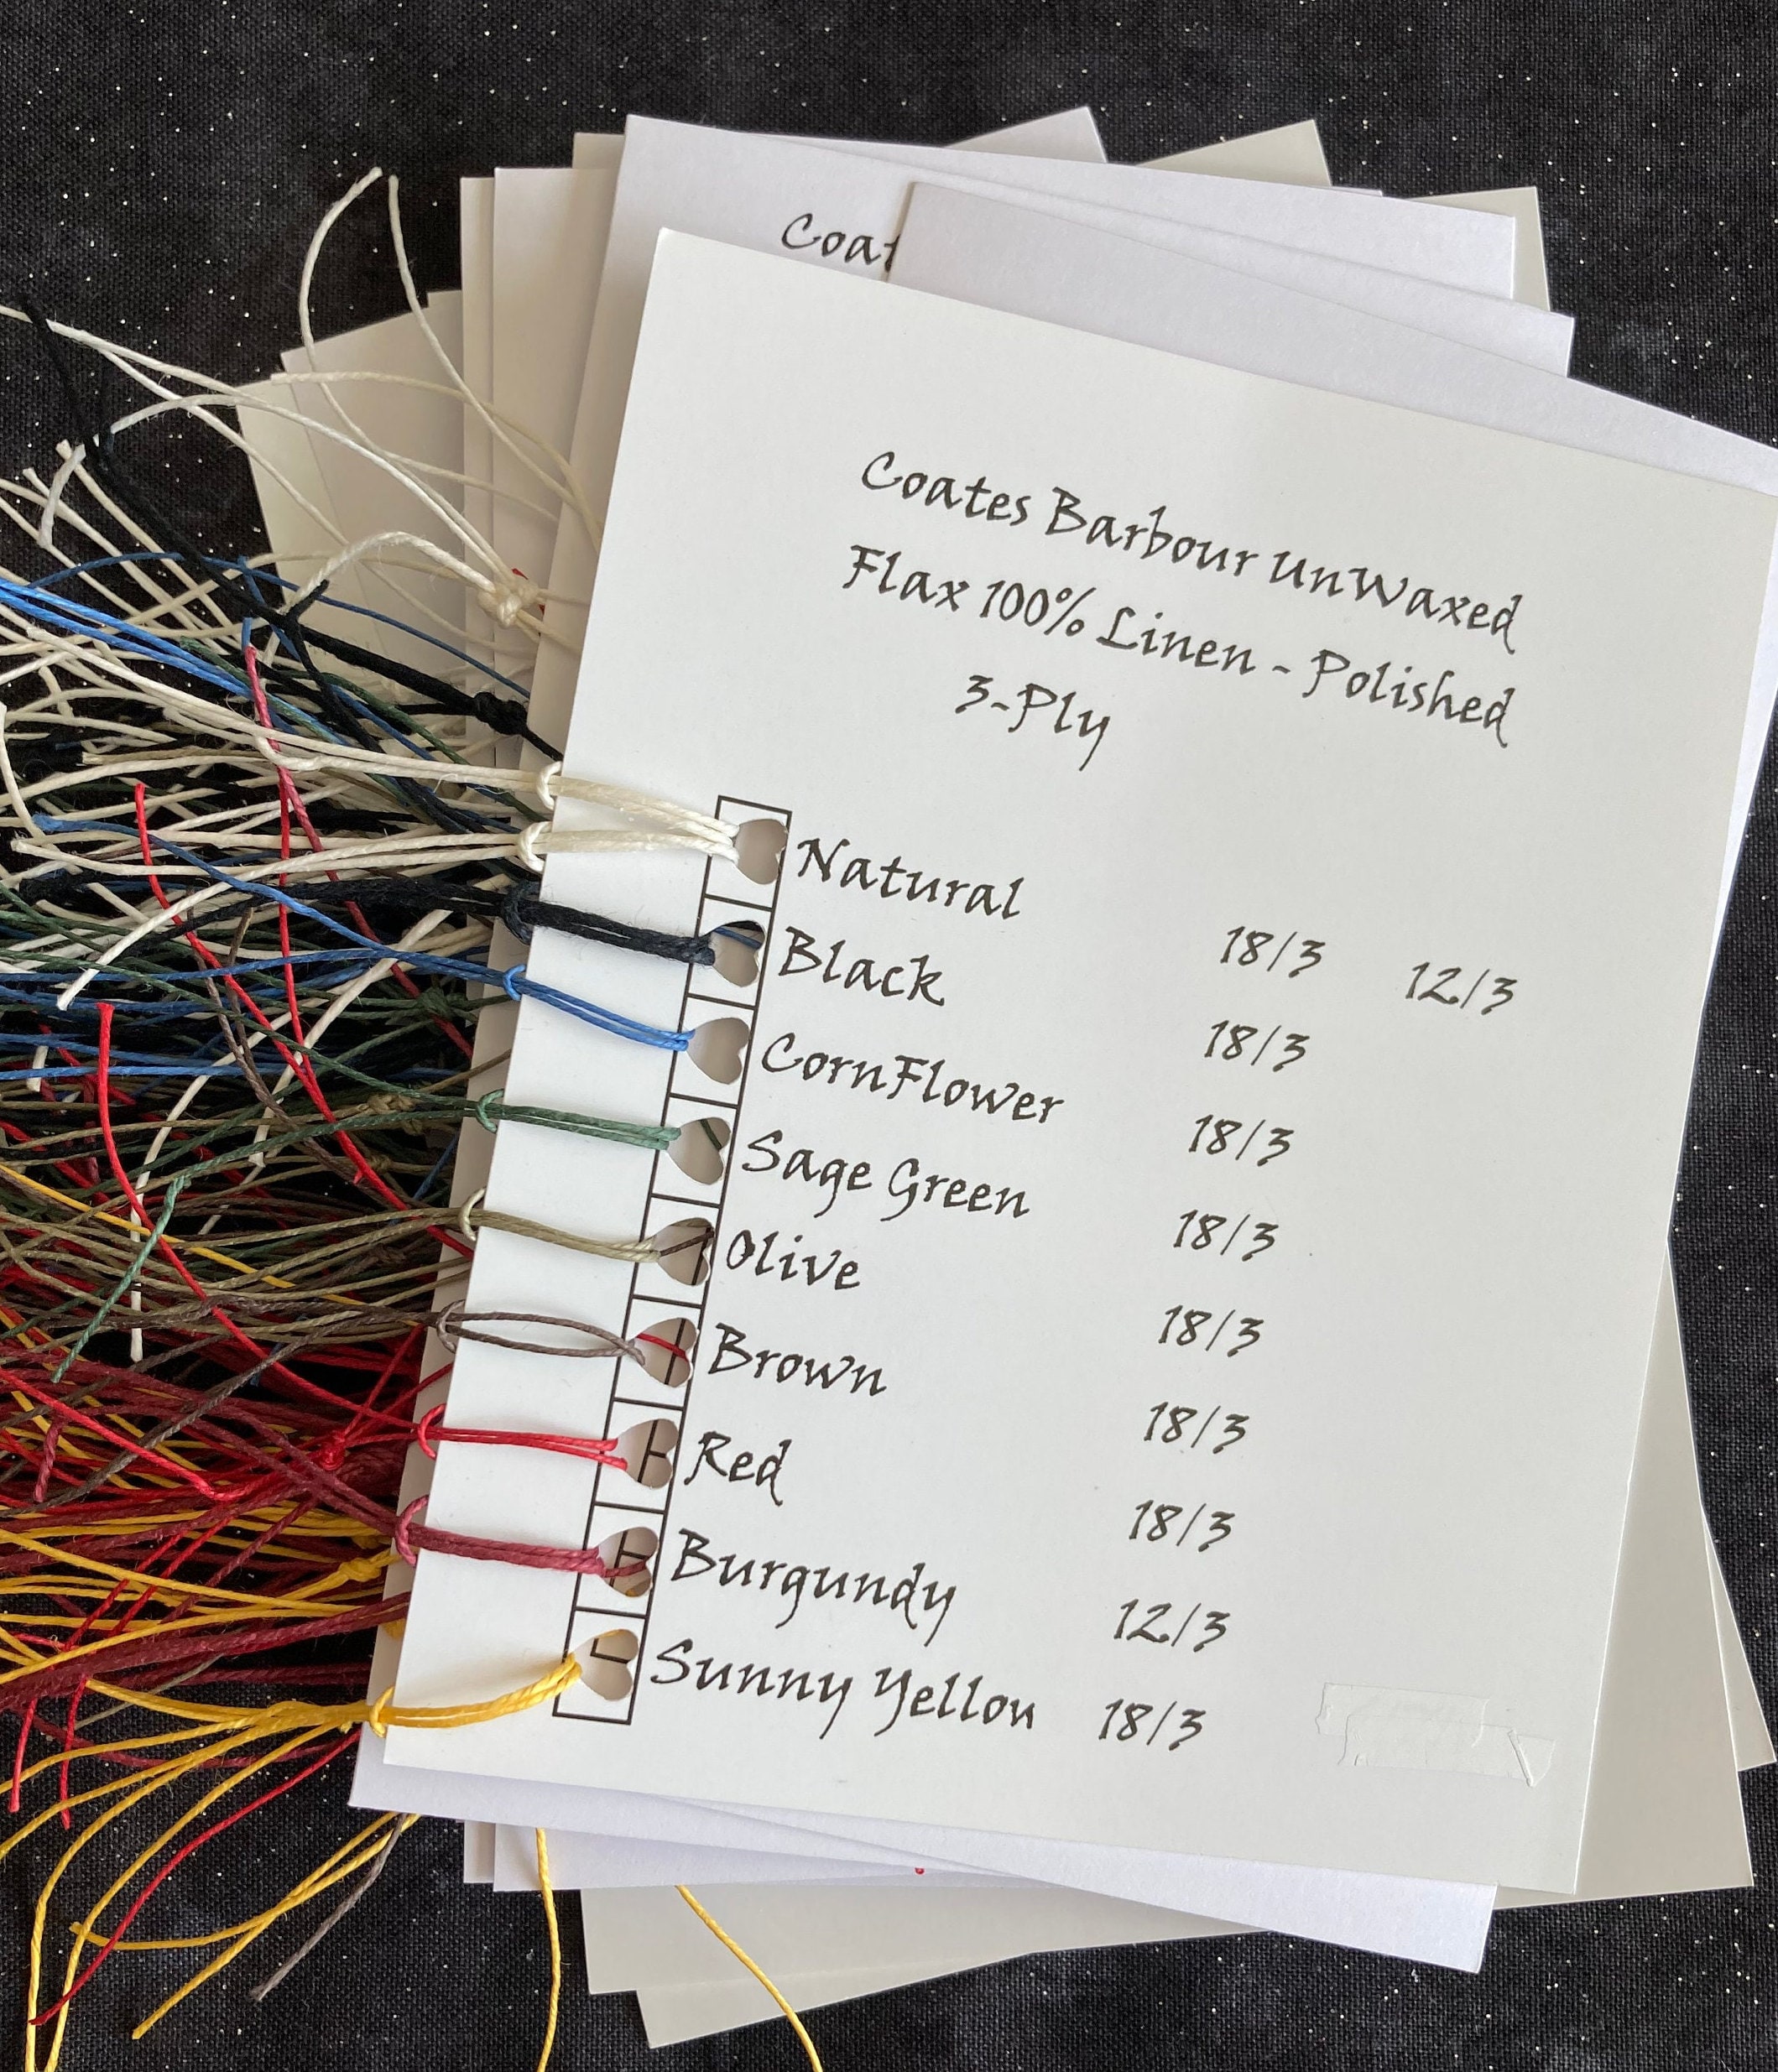 Coat
Coates Barbour UnWaxed
Flax 100% Linen - Polished
3-Ply
Natural 18/3 12/3
Black 18/3
CornFlower 18/3
Sage Green 18/3
Olive 18/3
Brown 18/3
Red 18/3
Burgundy 12/3
Sunny Yellow 18/3